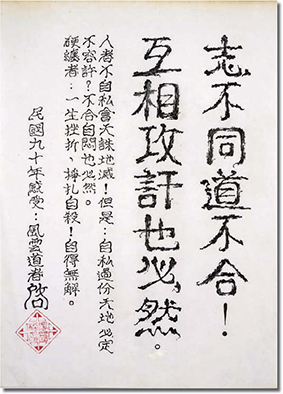 志不同道不合！
互相攻訐也必然。
人者不自私會天誅地滅！但是：自私過份天地必定
不容許？不合自悶也必然。
硬纏者：一生挫折、掙扎自殺！自得無解。
民國九十年感受：風雲道者